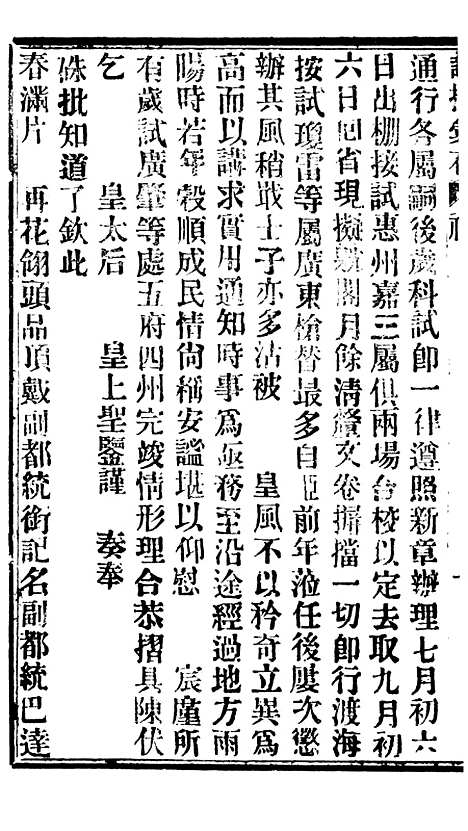 通行各屬嗣後歲科試卽一律遵照新章辦理七月初六
日出棚接試惠州嘉三屬俱兩場合校以定去取九月初
六日囘省現擬閣月餘淸釐文卷摒擋一切卽行渡海
按試瓊雷等屬廣東槍替最多自臣前年蒞任後屢次懲
辦其風稍戢士子亦多沾被　皇風不以矜奇立異爲
高而以講求實用通知時事爲亟務至沿途經過地方雨
陽時若年穀順成民情尙稱安謐堪以仰慰　宸廑所
有歲試廣肇等處五府四州完竣情形理合恭摺具陳伏
乞　皇太后　皇上聖鑒謹　奏奉
硃批知道了欽此
春滿片　再花翎頭品頂戴副都統銜記名副都統巴達